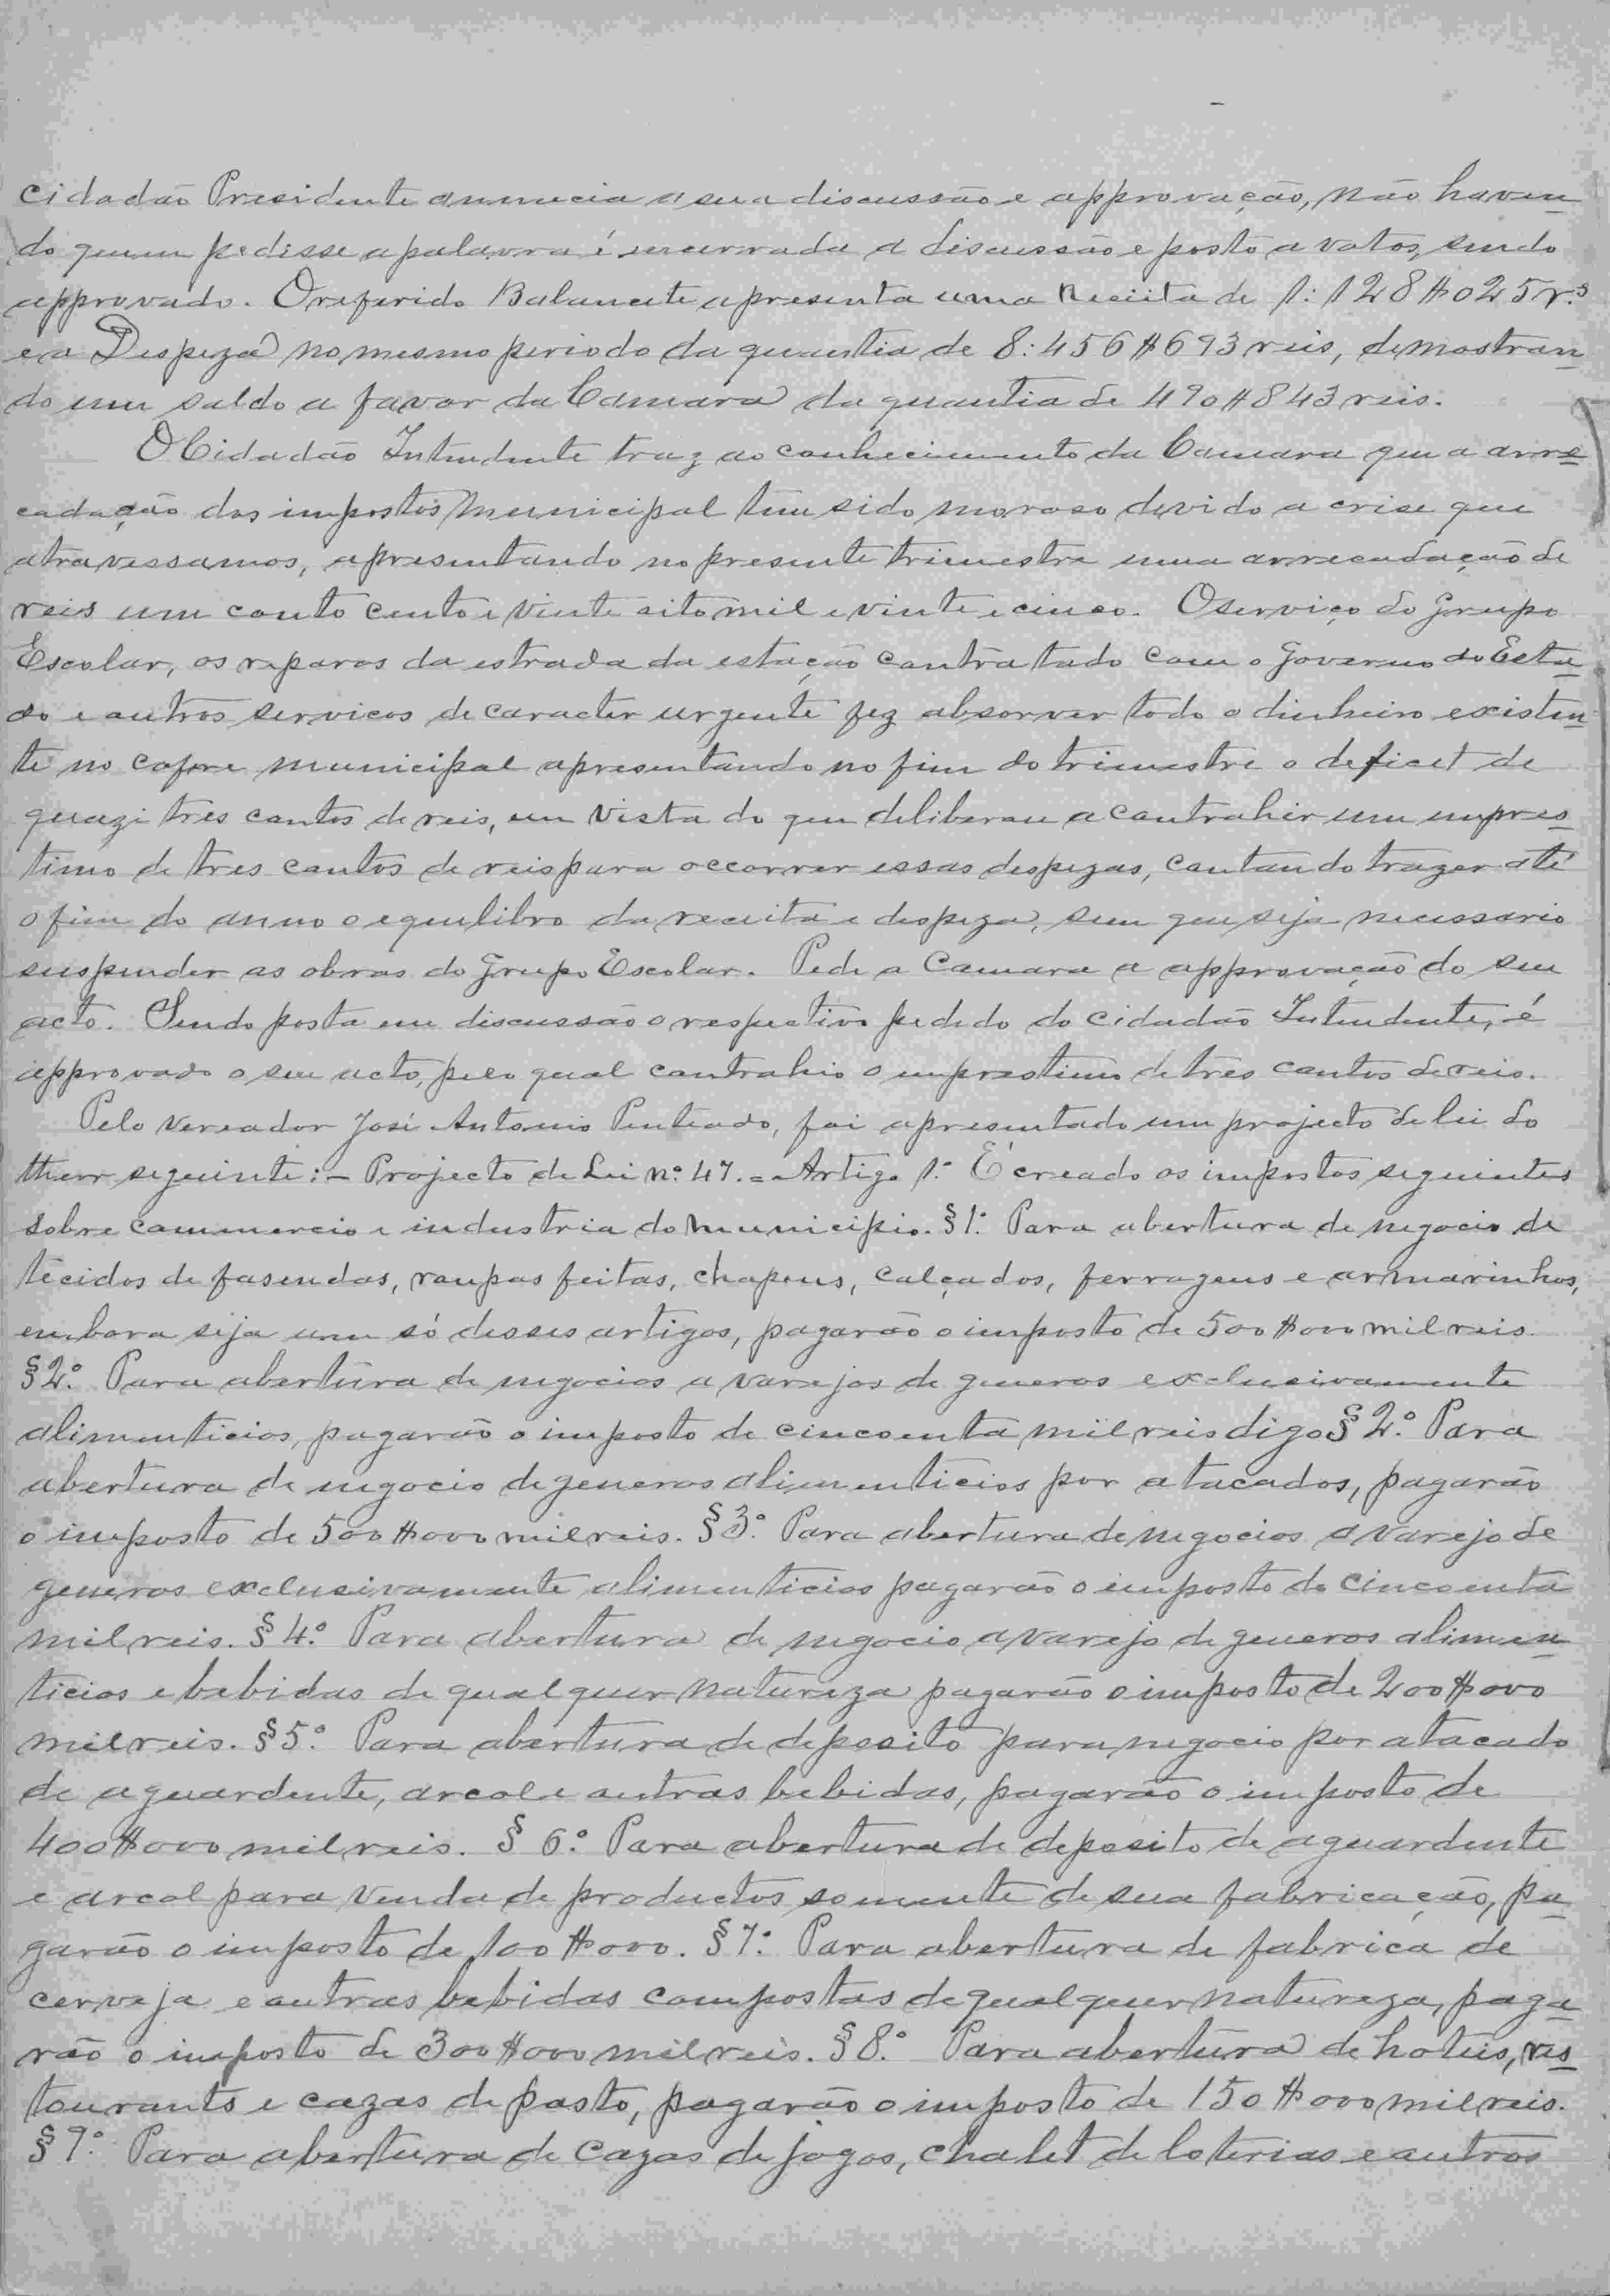 cidadão Presidente annuncia a sua discussão e approvação, não haven-
do quem pedisse a palavra é incerrada a discussão e posto a votos, sendo
approvado. O referido Balancete apresenta uma Receita de 1:128$025 r.s
e a Despeza no mesmo periodo da quantia de 8:456$693 reis, demostran-
do um saldo a favor da Camara da quantia de 490$843 reis.
O Cidadão Intendente traz ao conhecimento da Camara que a arre-
cadação dos impostos municipal tem sido moroso devido a crise que
atravessamos, apresentando no presente trimestre uma arrecadação de
reis um conto cento e vinte oito mil e vinte e cinco. O serviço do Grupo
Escolar, os reparos da estrada da estação contratado com o Governo do Esta-
do e outros servicos de caracter urgente fez absorver todo o dinheiro existen-
te no cofre municipal apresentando no fim do trimestre o deficet de
quazi tres contos de reis, em vista do que deliberou a contrahir um empres-
timo de tres contos de reis para occorrer essas despezas, contando trazer até
o fim do anno o equilibro da receita e despeza, sem que seja necessario
suspender as obras do Grupo Escolar. Pede a Camara a approvação do seu
acto. Sendo posta em discussão o respectivo pedido do cidadão Intendente, é
approvado o seu acto, pelo qual contrahio o imprestimo de tres contos de reis.
Pelo Vereador José Antonio Penteado, foi apresentado um projecto de lei do
theor seguinte:- Projecto de Lei nº 47. = Artigo 1.º É creado os impostos seguintes
sobre commercio e industria do municipio. § 1.º Para abertura de negocio de
tecidos de fasendas, roupas feitas, chapeus, calçados, ferragens e armarinhos,
embora seja um só desses artigos, pagarão o imposto de 500$000 mil reis.
§ 2.º Para abertura de negocios a varejos de generos exclusivamente
alimenticios, pagarão o imposto de cincoenta mil reis digo § 2.º Para
abertura de negocio de generos alimenticios por atacados, pagarão
o imposto de 500$000 mil reis. § 3.º Para abertura de negocios a varejo de
generos exclusivamente alimenticios pagarão o imposto de cincoenta
mil reis. § 4.º Para abertura de negocio a varejo de generos alimen-
ticios e bebidas de qualquer natureza pagarão o imposto de 200$000
mil reis. § 5.º Para abertura de deposito para negocio por atacado
de aguardente, arcol e outras bebidas, pagarão o imposto de
400$000 mil reis. § 6.º Para abertura de deposito de aguardente
e arcol para venda de productos somente de sua fabricação, pa-
garão o imposto de 100$000. § 7.º Para abertura de fabrica de
cerveja e outras bebidas compostas de qualquer natureza, paga-
rão o imposto de 300$000 mil reis. § 8.º Para abertura de hoteis, res-
tourants e cazas de pasto, pagarão o imposto de 150$000 mil reis.
§ 9.º Para abertura de cazas de jogos, chalet de loterias e outros